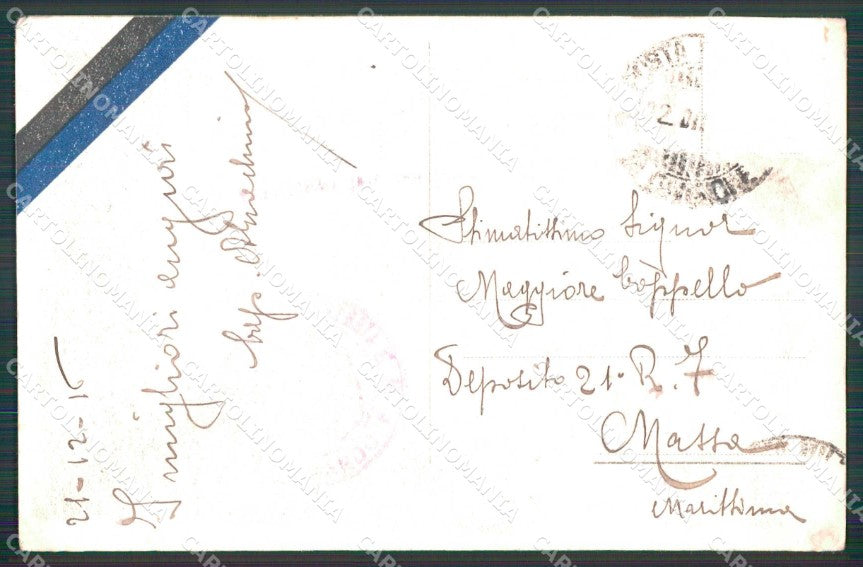 POSTA
22 DI
Stimatissimo Signor
Maggiore Coppello
Deposito 21° R. F
Massa
Marittima
21-12-15
I migliori auguri
CARTOLINOMANIA